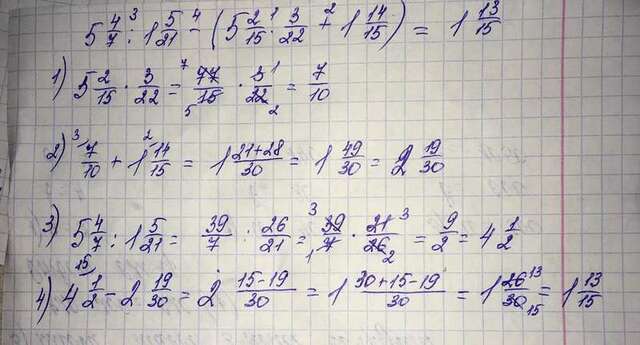 5 4/7 : 1 5/21 - (5 2/15 · 3/22 + 1 14/15) = 1 13/15
1) 5 2/15 · 3/22 = 77/15 · 3/22 = 7/10
2) 7/10 + 1 14/15 = 1 21+28/30 = 1 49/30 = 2 19/30
3) 5 4/7 : 1 5/21 = 39/7 · 26/21 = 39/7 · 21/26 = 9/2 = 4 1/2
4) 4 1/2 - 2 19/30 = 2 15-19/30 = 1 30+15-19/30 = 1 26/30 = 1 13/15